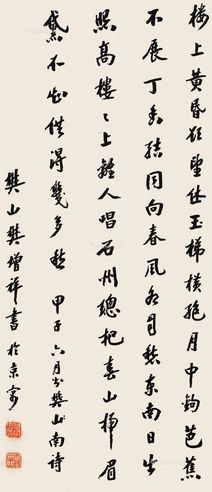 樓上黄昏欲望休玉梯橫絕月中鉤芭蕉
不展丁香結同向春風各自愁東南日出
照高樓〻上離人唱石州總把春山掃眉
黛不知供得幾多愁 甲子六月書樊山南詩
樊山樊增祥書於京寓